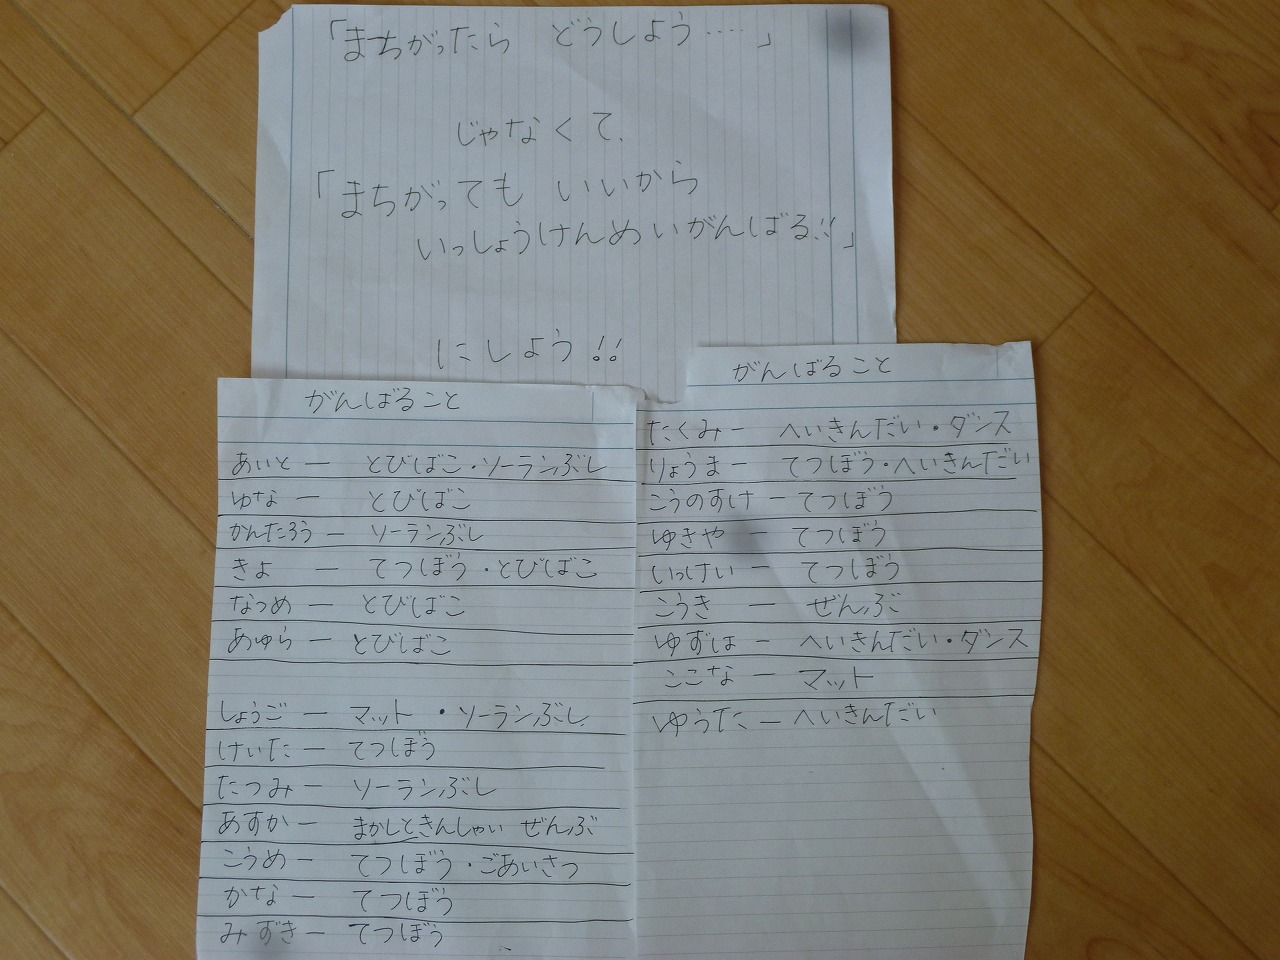 「まちがったら どうしよう‥‥」
じゃなくて、
「まちがっても いいから
いっしょうけんめいがんばる!!」
にしよう!!
がんばること
あいと ー とびばこ・ソーランぶし
ゆな ー とびばこ
かんたろう ー ソーランぶし
きよ ー てつぼう・とびばこ
なつめ ー とびばこ
あゆら ー とびばこ
しょうご ー マット・ソーランぶし
けいた ー てつぼう
たつみ ー ソーランぶし
あすか ー まかしときんしゃい ぜんぶ
こうめ ー てつぼう・ごあいさつ
かな ー てつぼう
みずき ー てつぼう
がんばること
たくみ ー へいきんだい・ダンス
りょうま ー てつぼう・へいきんだい
こうのすけ ー てつぼう
ゆきや ー てつぼう
いっけい ー てつぼう
こうき ー ぜんぶ
ゆずは ー へいきんだい・ダンス
ここな ー マット
ゆうた ー へいきんだい